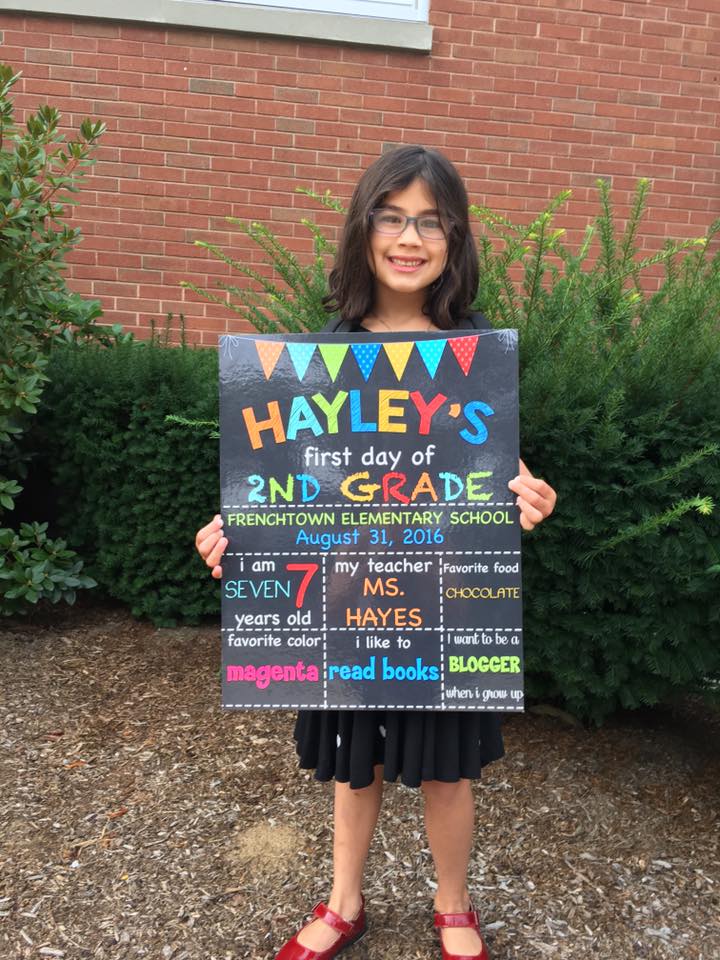 HAYLEY'S
first day of
2ND GRADE
FRENCHTOWN ELEMENTARY SCHOOL
August 31, 2016
i am
SEVEN 7
years old
my teacher
MS.
HAYES
Favorite food
CHOCOLATE
favorite color
magenta
i like to
read books
I want to be a
BLOGGER
when i grow up